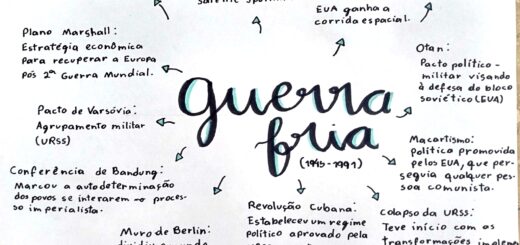 EUA ganha a
corrida espacial.
Plano Marshall:
Estratégia econômica
para recuperar a Europa
pós 2ª Guerra Mundial.
Otan:
Pacto político-
militar visando
à defesa do bloco
soviético (EUA)
guerra
fria
(1945-1991)
Pacto de Varsóvia:
Agrupamento militar
(URSS)
Macartismo:
política promovida
pelos EUA, que per-
seguia qualquer pes-
soa comunista.
Conferência de Bandung:
Marcou a autodeterminação
dos povos se interarem → proces-
so imperialista.
Revolução Cubana:
Estabeleceu um regime
político aprovado pela
Colapso da URSS:
Teve início com as
Muro de Berlin: